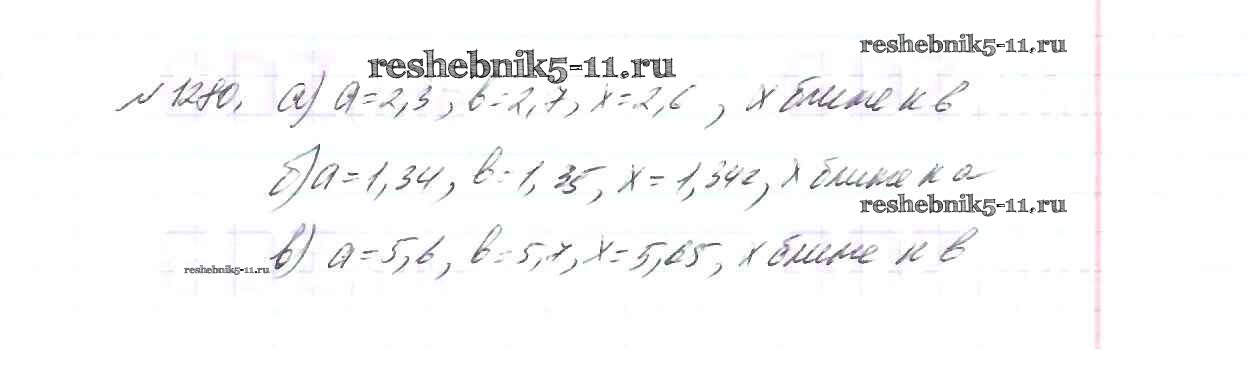 reshebnik5-11.ru
reshebnik5-11.ru
№1280. а) a=2,3, в=2,7, x=2,6, x ближе к в
б) a=1,34, в=1,35, x=1,342, x ближе к a
reshebnik5-11.ru
в) a=5,6, в=5,7, x=5,65, x ближе к в
reshebnik5-11.ru